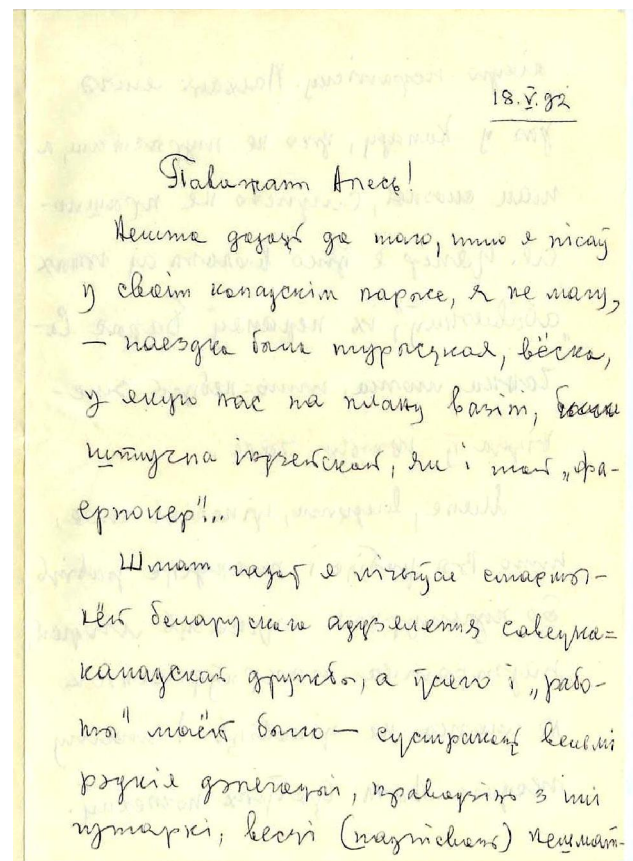 18.V.92
Паважаны Алесь!
Нешта дадаць да таго, што я пісаў
у сваім канадскім нарысе, я не магу,
— паездка была турысцкая, вёска,
у якую нас па плану вазілі, была
штучна індзейскай, як і той „фа-
ермэкер“...
Шмат гадоў я лічыўся старшы-
нёй беларускага аддзялення савецка=
канадскай дружбы, а ўсяго і „рабо-
ты“ маёй было — сустракаць вельмі
рэдкія дэлегацыі, праводзіць з імі
гутаркі, весці (падпісваць) нешмат-